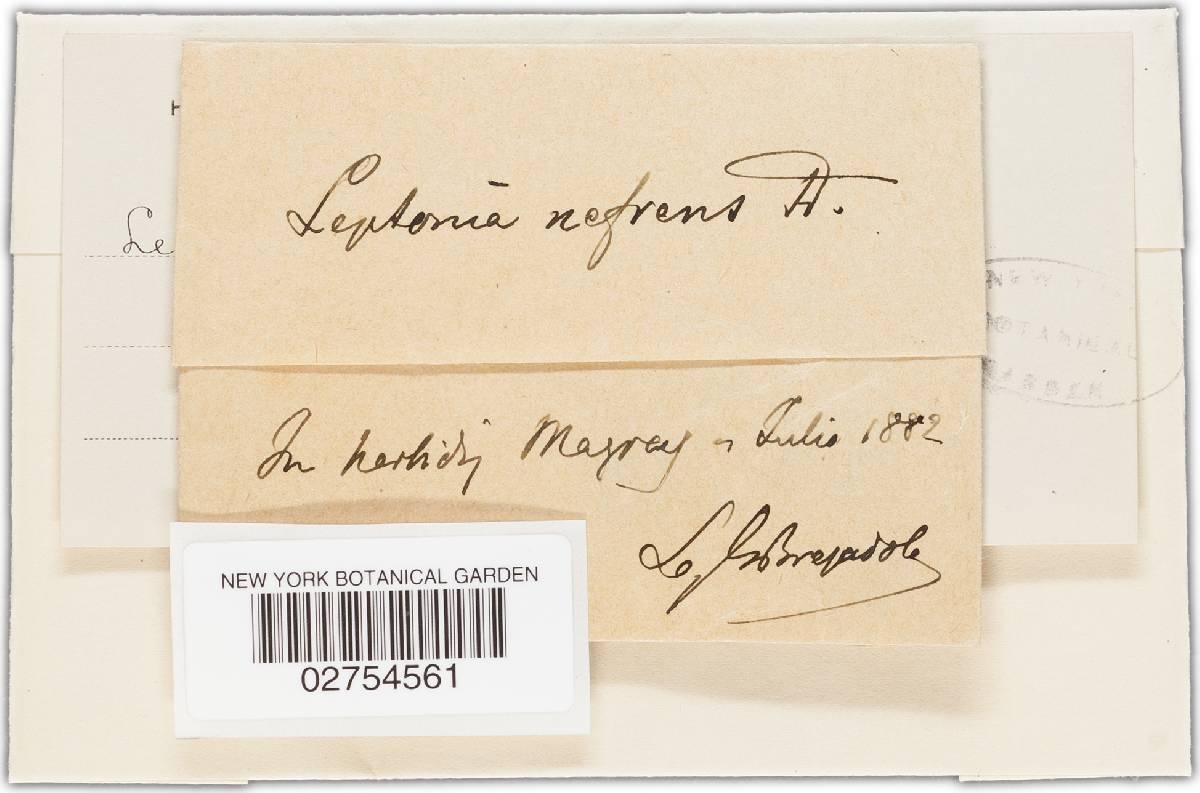 H
Le
Leptonia nefrens Fr.
In herbidis Magras - Julio 1882
Bresadola
NEW YORK
BOTANICAL
GARDEN
NEW YORK BOTANICAL GARDEN
02754561